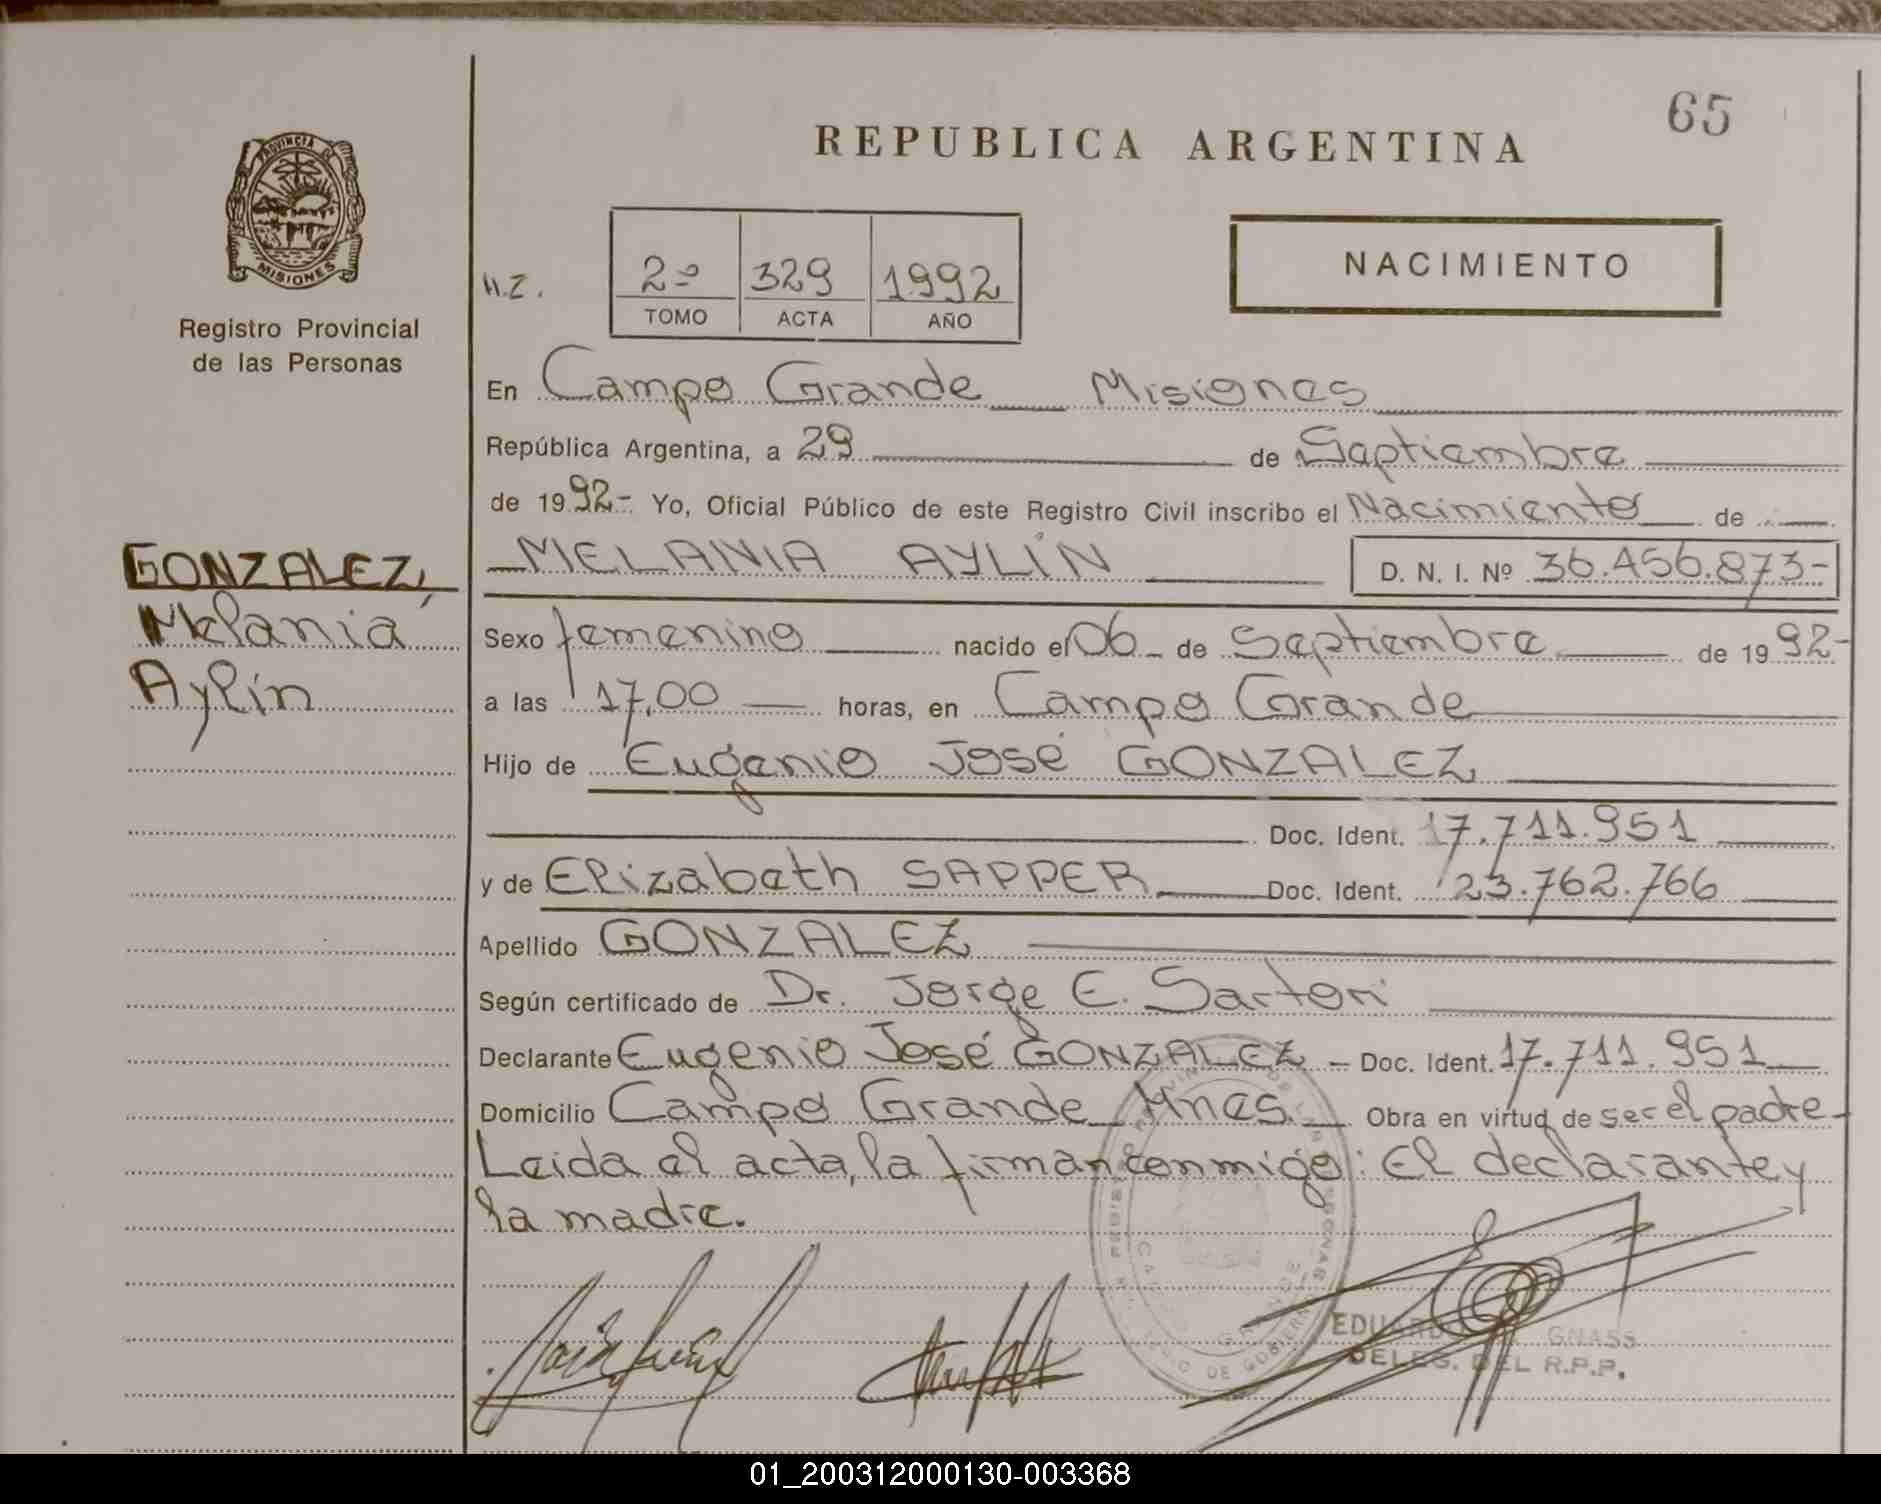 65
REPUBLICA ARGENTINA
PROVINCIA DE
MISIONES
Registro Provincial
de las Personas
2º 329 1992
TOMO ACTA AÑO
NACIMIENTO
En Campo Grande Misiones
República Argentina, a 29 de Septiembre
de 1992- Yo, Oficial Público de este Registro Civil inscribo el Nacimiento de
GONZALEZ,
Melania
Aylín
MELANIA AYLÍN D. N. I. Nº 36.456.873-
Sexo femenino nacido el 06 de Septiembre de 1992-
a las 17,00 horas, en Campo Grande
Hijo de Eugenio José GONZALEZ
Doc. Ident. 17.711.951
y de Elizabeth SAPPER Doc. Ident. 23.762.766
Apellido GONZALEZ
Según certificado de Dr. Jorge E. Sartori
Declarante Eugenio José GONZALEZ - Doc. Ident. 17.711.951
Domicilio Campo Grande Mnes. Obra en virtud de ser el padre-
Leida el acta, la firman conmigo: El declarante y
la madre.
EDUARDO GNASS
DELEG. DEL R.P.P.
01_200312000130-003368